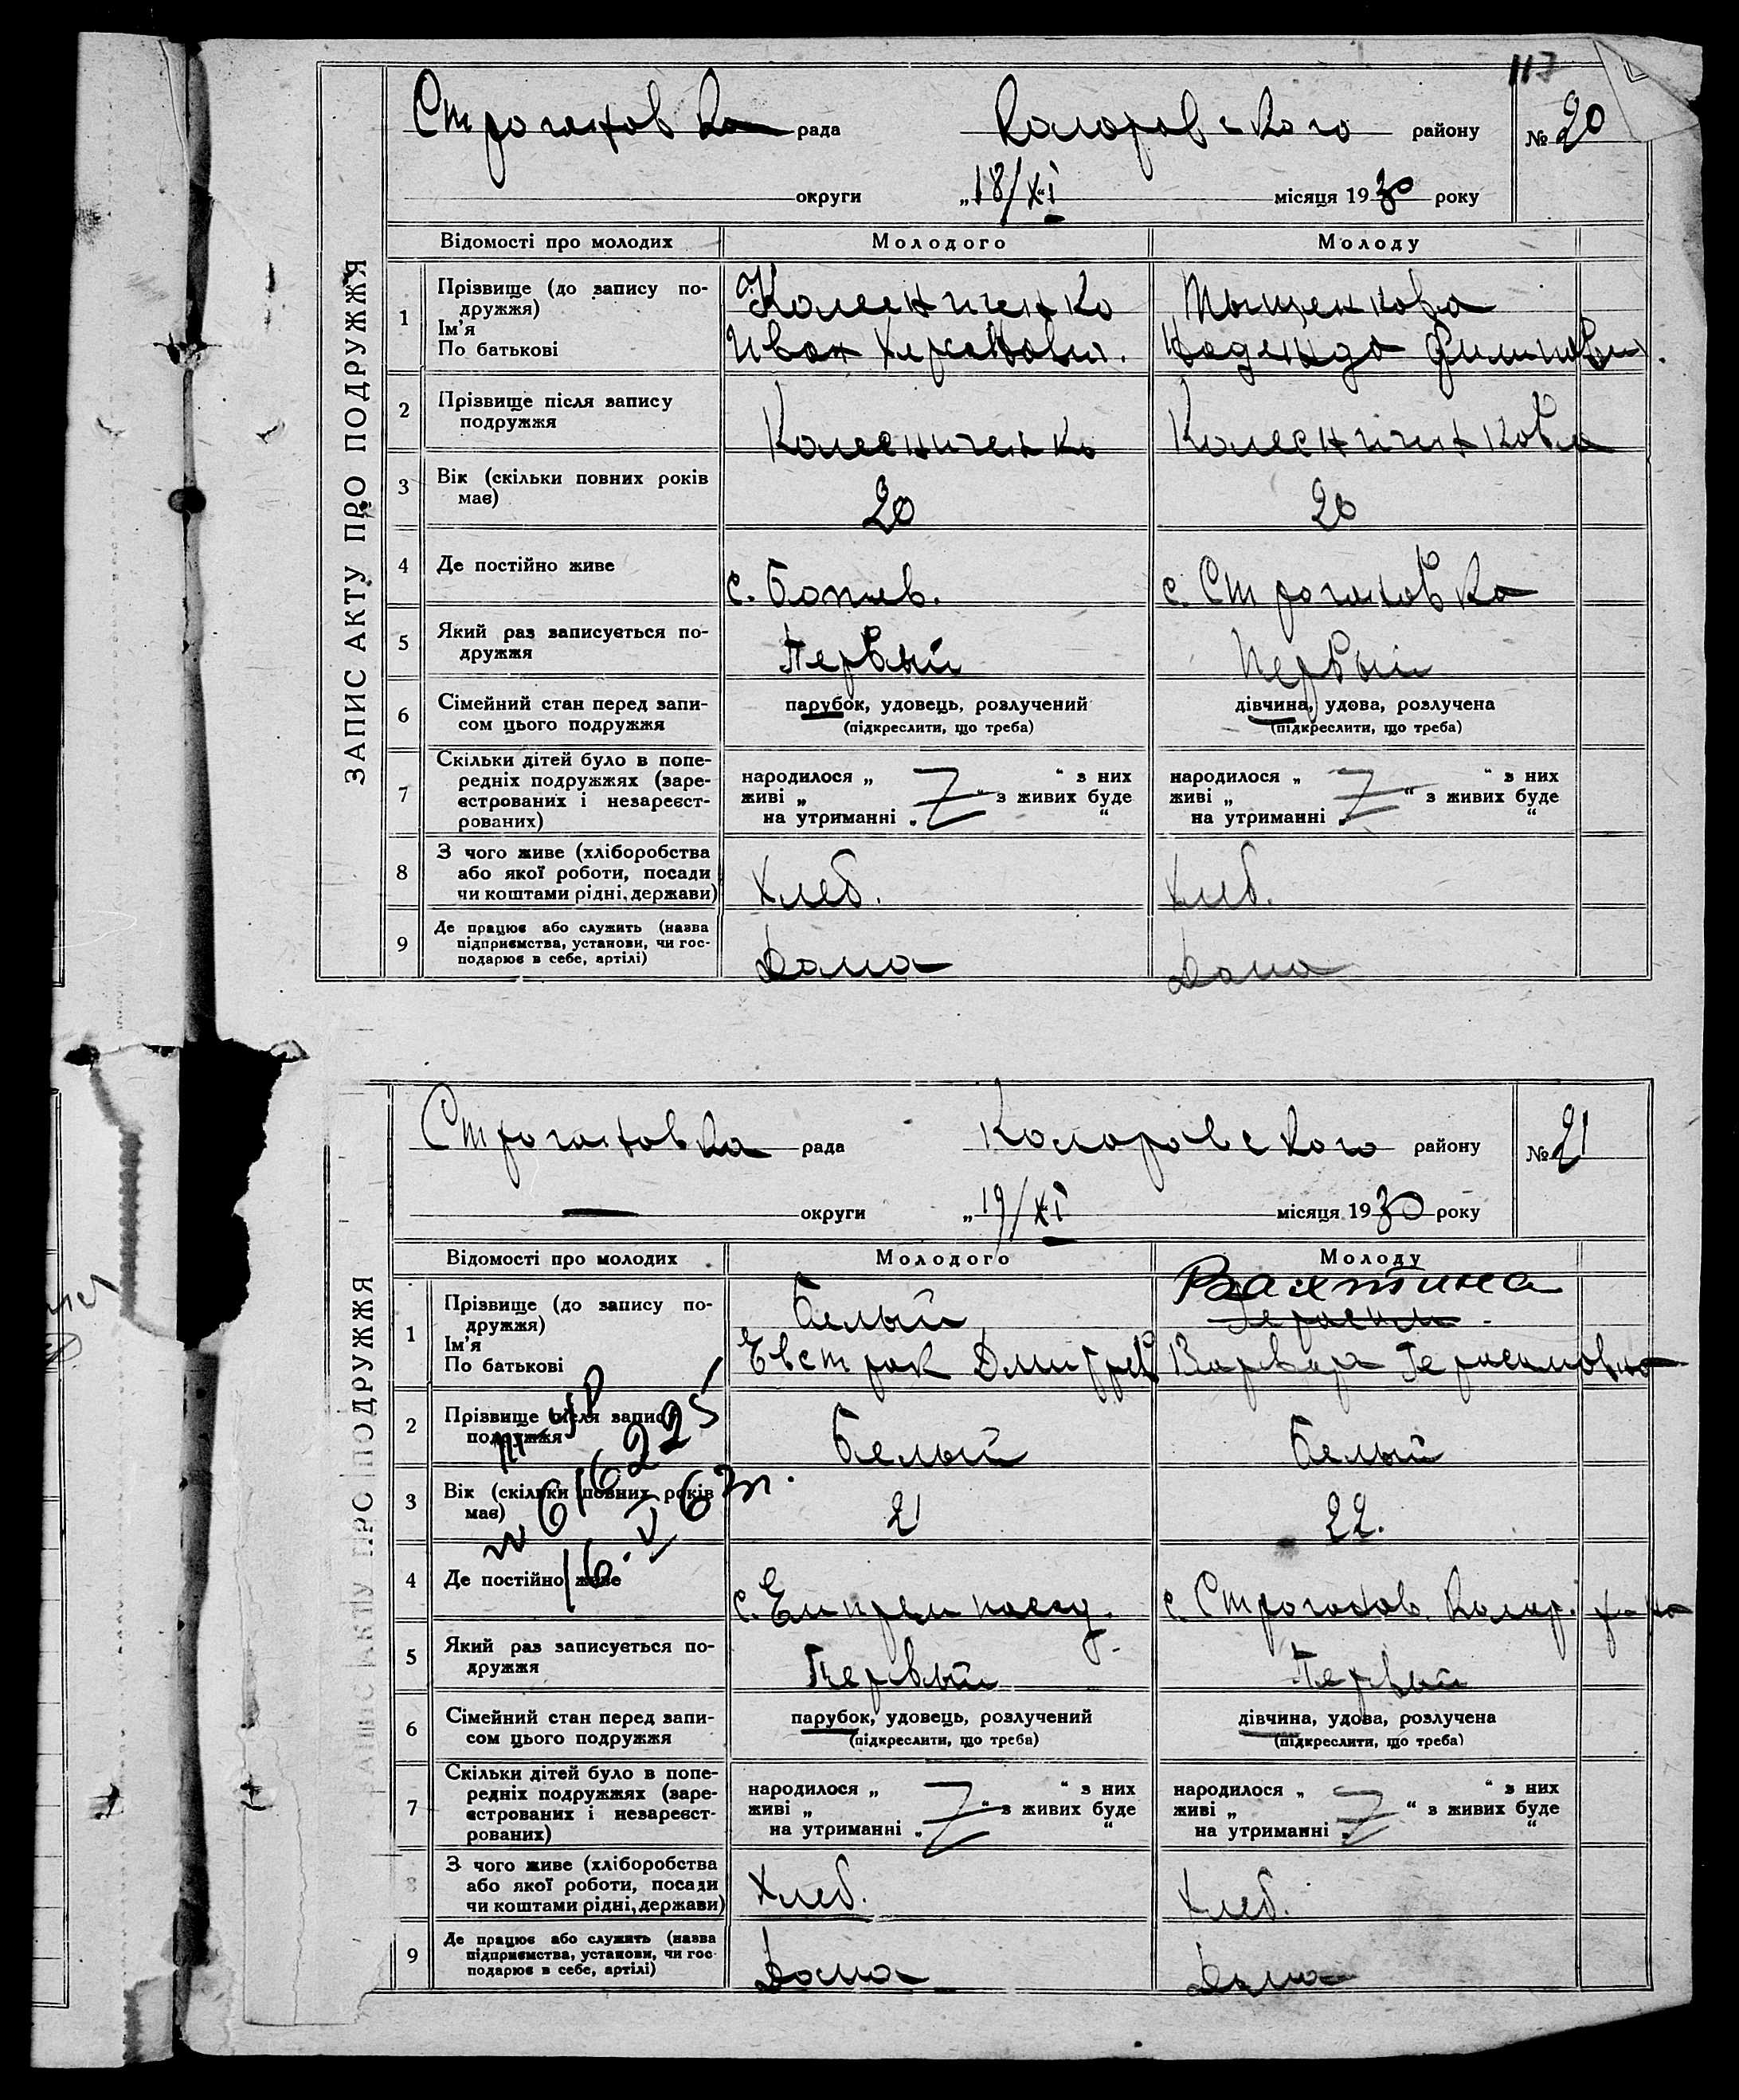 117
Строгановка рада Коларовского району № 20
округи „18/XI" місяця 1930 року
ЗАПИС АКТУ ПРО ПОДРУЖЖЯ
Відомості про молодих Молодого Молоду
1 Прізвище (до запису по-
дружжя)
Ім'я
По батькові
Колесниченко
Иван
Надежда
2 Прізвище після запису
подружжя
Колесниченко Колесниченкова
3 Вік (скільки повних років
має)
20 20
4 Де постійно живе
с. с. Строгановка
5 Який раз записується по-
дружжя
Первый Первый
6 Сімейний стан перед запи-
сом цього подружжя
парубок, удовець, розлучений
(підкреслити, що треба)
дівчина, удова, розлучена
(підкреслити, що треба)
7 Скільки дітей було в попе-
редніх подружжях (заре-
єстрованих і незареєст-
рованих)
народилося „ “ з них
живі „ “ з живих буде
на утриманні „ “
народилося „ “ з них
живі „ “ з живих буде
на утриманні „ “
8 З чого живе (хліборобства
або якої роботи, посади
чи коштами рідні, держави)
Хлеб. Хлеб.
9 Де працює або служить (назва
підприємства, установи, чи гос-
подарює в себе, артілі)
Дома Дома
Строгановка рада Коларовского району № 21
округи „19/XI місяця 1930 року
ЗАПИС АКТУ ПРО ПОДРУЖЖЯ
Відомості про молодих Молодого Молоду
1 Прізвище (до запису по-
дружжя)
Ім'я
По батькові
Белый Вахтина
Евстрат Варвара Герасимовна
2 Прізвище після запису
подружжя
Белый Белый
3 Вік (скільки повних років
має)
21 22.
616225
16.V 63г.
4 Де постійно живе
с. с. Строганов. Колар. р-на
5 Який раз записується по-
дружжя
Первый Первый
6 Сімейний стан перед запи-
сом цього подружжя
парубок, удовець, розлучений
(підкреслити, що треба)
дівчина, удова, розлучена
(підкреслити, що треба)
7 Скільки дітей було в попе-
редніх подружжях (заре-
єстрованих і незареєст-
рованих)
народилося „ “ з них
живі „ “ з живих буде
на утриманні „ “
народилося „ “ з них
живі „ “ з живих буде
на утриманні „ “
8 З чого живе (хліборобства
або якої роботи, посади
чи коштами рідні, держави)
Хлеб. Хлеб.
9 Де працює або служить (назва
підприємства, установи, чи гос-
подарює в себе, артілі)
Дома Дома